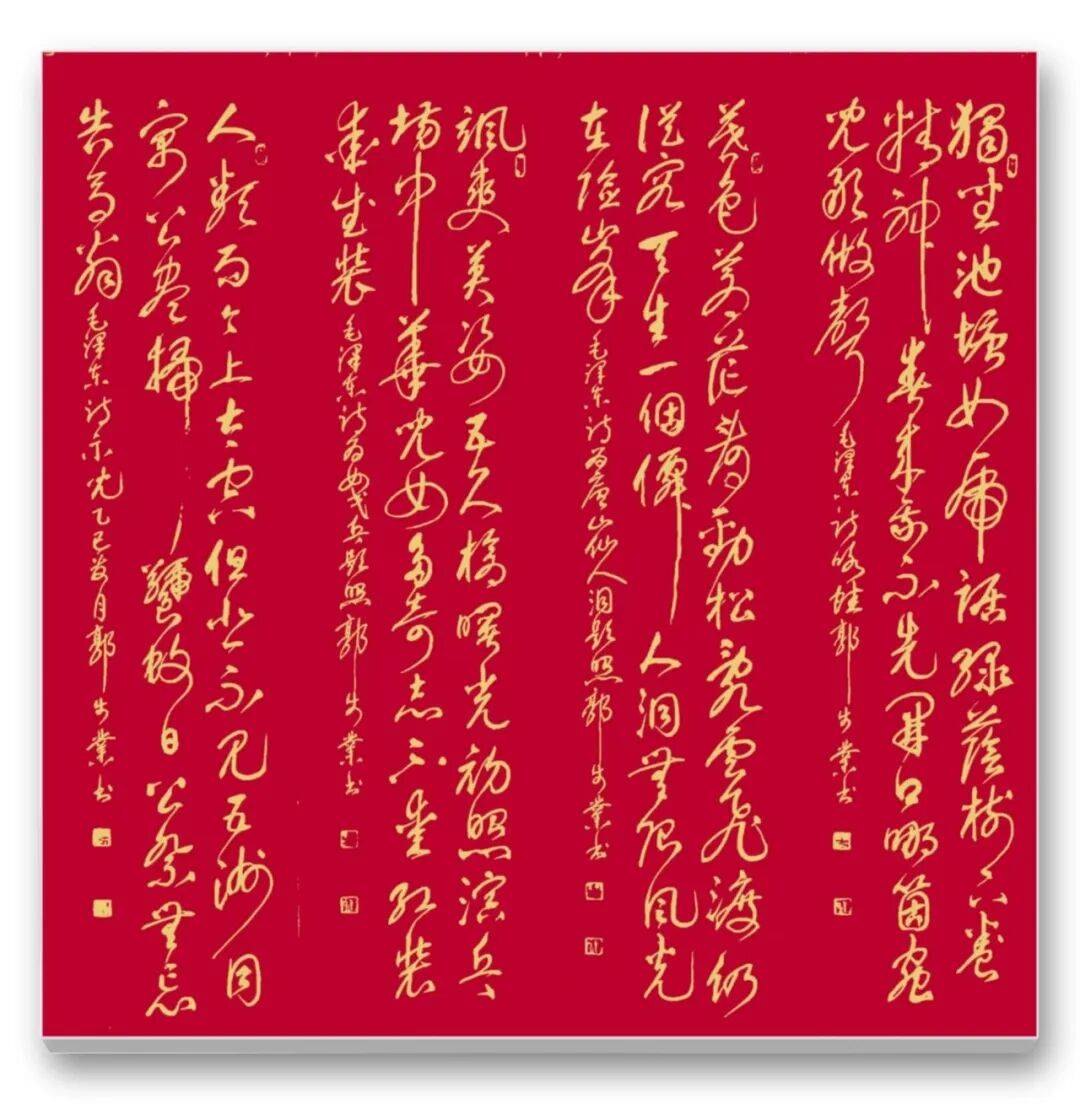 獨坐池塘如虎踞綠蔭樹下養
精神春來我不先開口哪箇蟲
兒敢做聲 毛澤東詩咏蛙郭業书
暮色蒼茫看勁松亂雲飛渡仍
從容天生一個僊人洞無限風光
在險峰 毛澤東詩為廬山仙人洞影照郭業书
颯爽英姿五尺槍曙光初照演兵
場中華兒女多奇志不愛紅裝
愛武裝 毛澤東詩為女民兵影照郭業书
人類而今上太空但悲不見五洲同
寓公盡掃饕蚊日公祭無忘
告馬翁 毛澤東詩示兒乙巳月郭業书